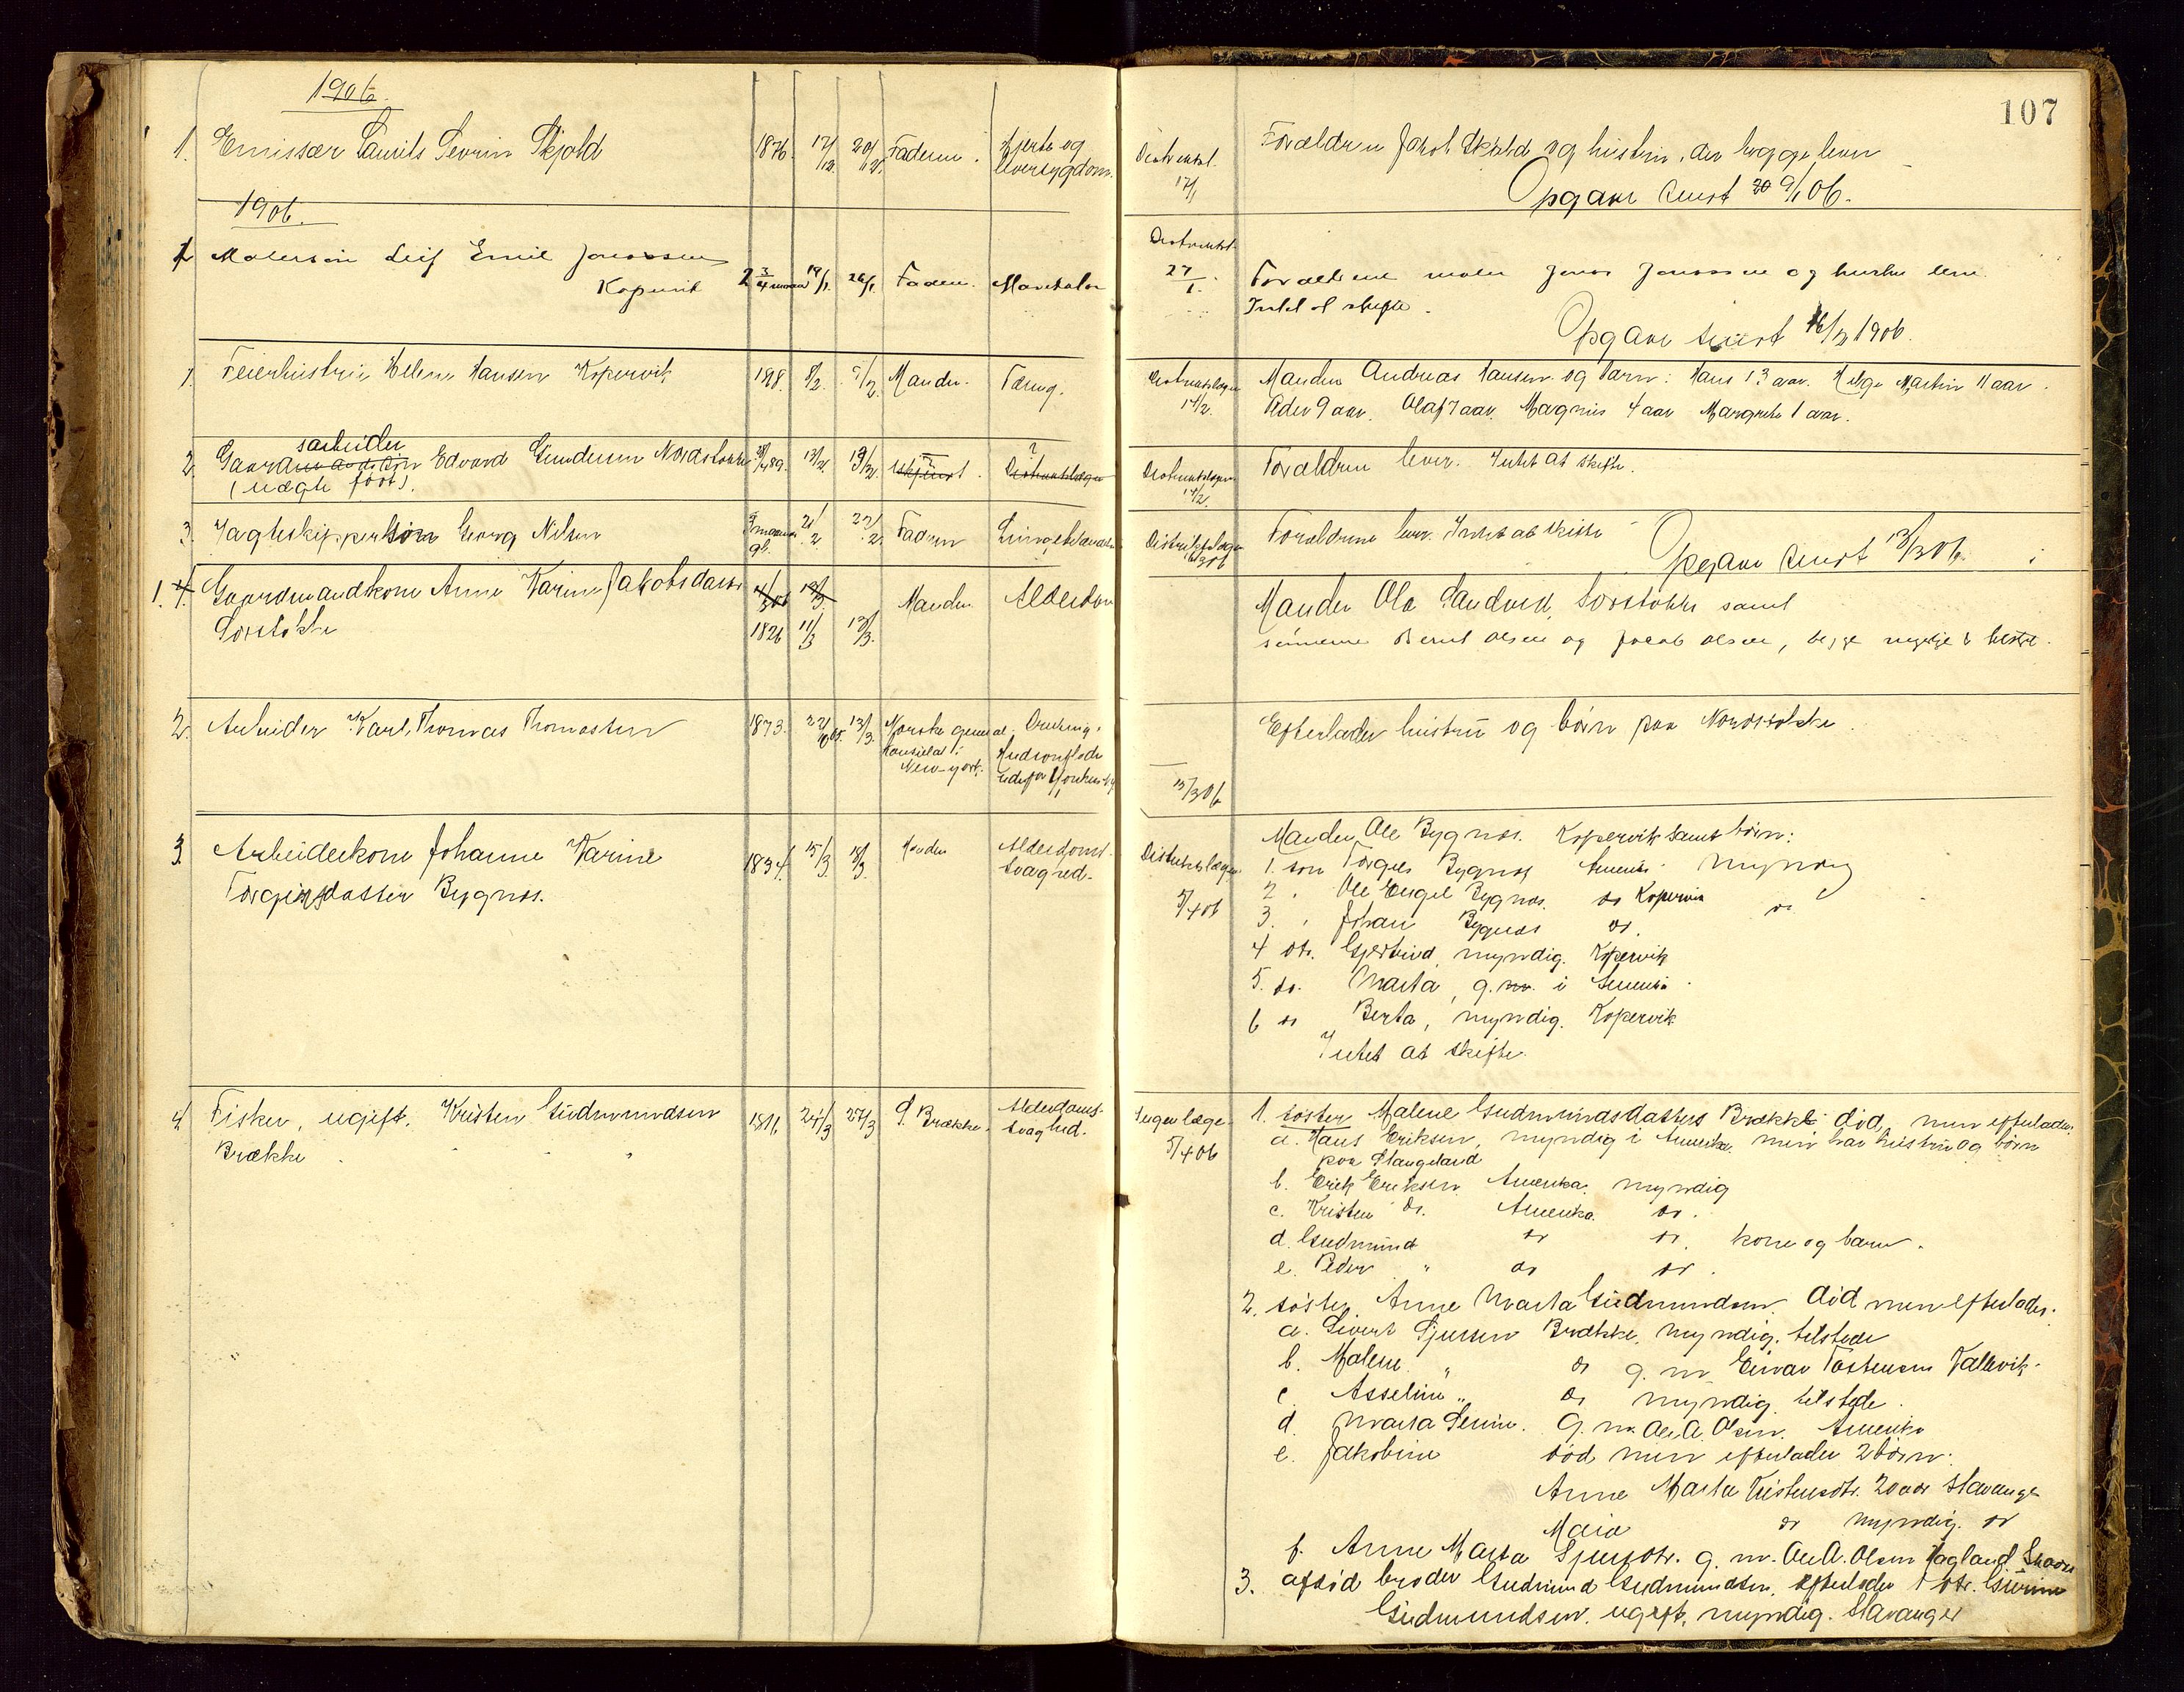 107
1906.
1. Emissær Laurits Sevrin Skjold 1876. 17/12. 20/12. Faderen. Hjerte og
leversygdom.
Distriktsl.
17/1
Forældrene Jakob Skjold og hustru, der begge lever
Opgave sendt 9/1 06.
1906.
1 Malersøn Leif Emil Jonassen
Kopervik 2 3/4 maaned 19/1. 26/1. Faderen.
Distriktsl.
27/1.
Forældrene maler Jonas Jonassen og hustru lever.
Intet at skifte.
Opgave sendt 16/2 1906.
1. Feierhustru Helene Hansen Kopervik 8/2. 9/2. Manden. Tæring.
Distriktslægen
14/2.
Manden Andreas Hansen og barn: Hans 13 aar. Helge Martin 11 aar.
Peder 9 aar. Olaf 7 aar. Magnus 4 aar Margrete 1 aar.
sarbeider
2. Gaard Edvard Gundersen Nordstokke 13/2. 19/2. ?
(uægte født).
Distriktslægen
14/2.
Forældrene lever. Intet at skifte.
3. Jagteskippersøn Georg Nilsen 3 maaneder gl. 21/2 22/2. Faderen Lungebetændelse
Distriktslægen
Forældrene lever. Intet at skifte
Opgave sendt 13/3 06.
1. 4. Gaardmandskone Anne Karine Jakobsdatter
Sørstokke 1826 11/3 13/3. Manden Alderdom
Manden Ola Sandved, Sørstokke samt
sønnerne Bernt Olsen og Jakob Olsen, begge myndige & tilstede.
2. Arbeider Karl Thomas Thomassen 1873. 22/10 05. 13/3. Norske general
konsulat i
New-york.
Drukning i
Hudsonfloden
udenfor Yonkers N.Y.
15/3 06
Efterlader hustru og børn paa Nordstokke.
3. Arbeiderkone Johanne Karine
Torgersdatter Bygnes. 1834. 15/3. 18/3. Manden Alderdoms-
svaghed.
Distriktslægen
5/4 06
Manden Ole Bygnes. Kopervik samt børn:
1. søn Torgels Bygnes Amerika Myndig
2 " Ole Engel Bygnes. do Kopervik
3. " Johan Bygnes do. do
4 dtr. Gjertrud, myndig. Kopervik
5. do. Marta, g.m. i Amerika.
6 do Berta, myndig. Kopervik
Intet at skifte.
4. Fisker, ugift. Kristen Gudmundsen
Brække. 1816 24/3 27/3 P. Brække. Alderdoms-
svaghed.
Ingen læge.
5/4 06
1. søster Malene Gudmundsdatter Brække død, men efterlader:
a. Hans Eriksen, myndig i Amerika. men har hustru og børn
paa Stangeland
b. Erik Eriksen Amerika. myndig
c. Kristen do. Amerika. do.
d. Gudmund do do. kone og barn.
e. Peder " do do.
2. søster Anne Marta Gudmundsen. død men efterlader.
a. Sivert Sjursen Brække, myndig. tilstede
b. Malene " do g.m Einar Tostensen Vallevik.
c. Asseline " do myndig. tilstede.
d. Marta Serine. G.m. Ole A. Olsen. Amerika
e. Jakobine død men efterlader 2 børn:
Anne Marta Kristensdtr. 20 aar Stavanger
Maria do myndig. do
f. Anne Marta Sjursdtr. g.m. Ole A. Olsen Hagland. Skaare
3. afdød broder Gudmund Gudmundsen, efterlader 1 dtr. Gurine
Gudmundsen. ugift, myndig. Stavanger